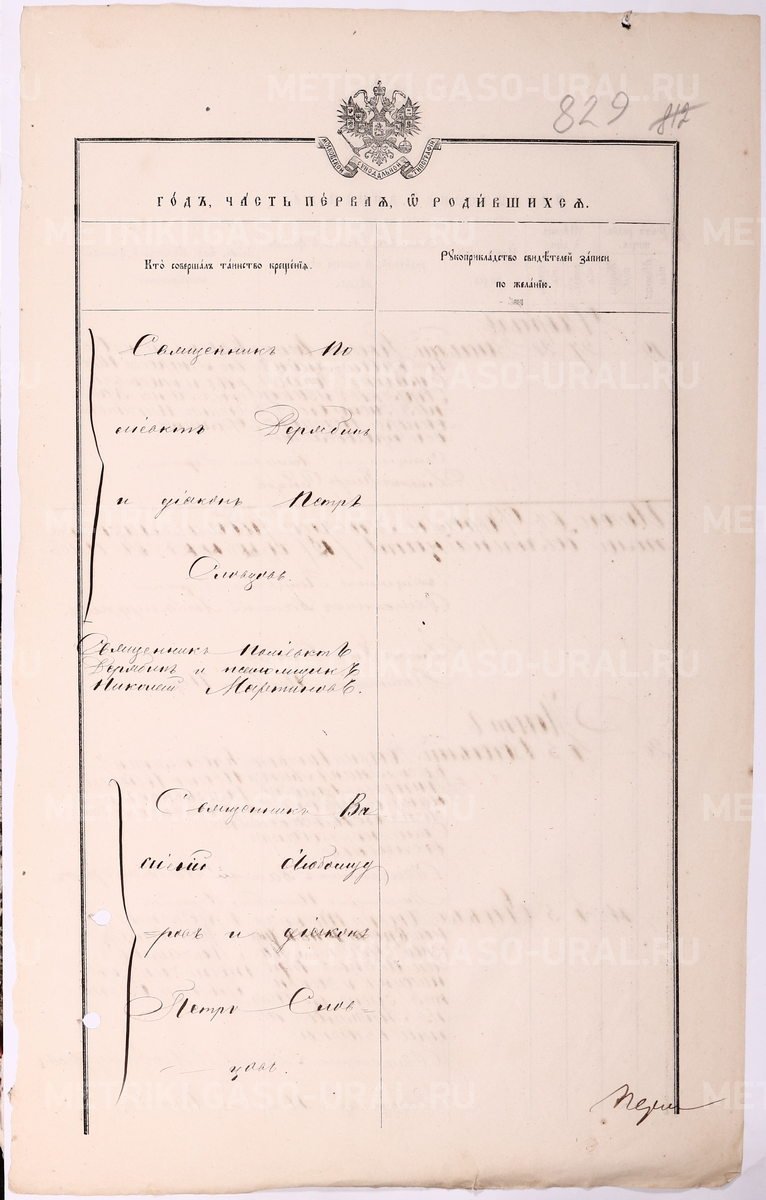 829 812
МОСКОВСКОЙ СИНОДАЛЬНОЙ ТИПОГРАФІИ
ГО́ДЪ, ЧА́СТЬ ПЕ́РВАЯ, Ѿ РОДИ́ВШИХСЯ.
Кто̀ соверша́лъ та́инство креще́нїя.
Рꙋкоприкла́дство свидѣ́телей за́писи
по жела́нїю.
Священникъ По
ліевктъ Воробинъ
и діаконъ Петръ
Словцовъ.
Священникъ Поліевктъ
Воробинъ и псаломщикъ
Николай Мартиновъ.
Священникъ Ва
силій Любомуд
=ровъ и діаконъ
Петръ Слов=
цовъ.
METRIKI.GASO-URAL.RU